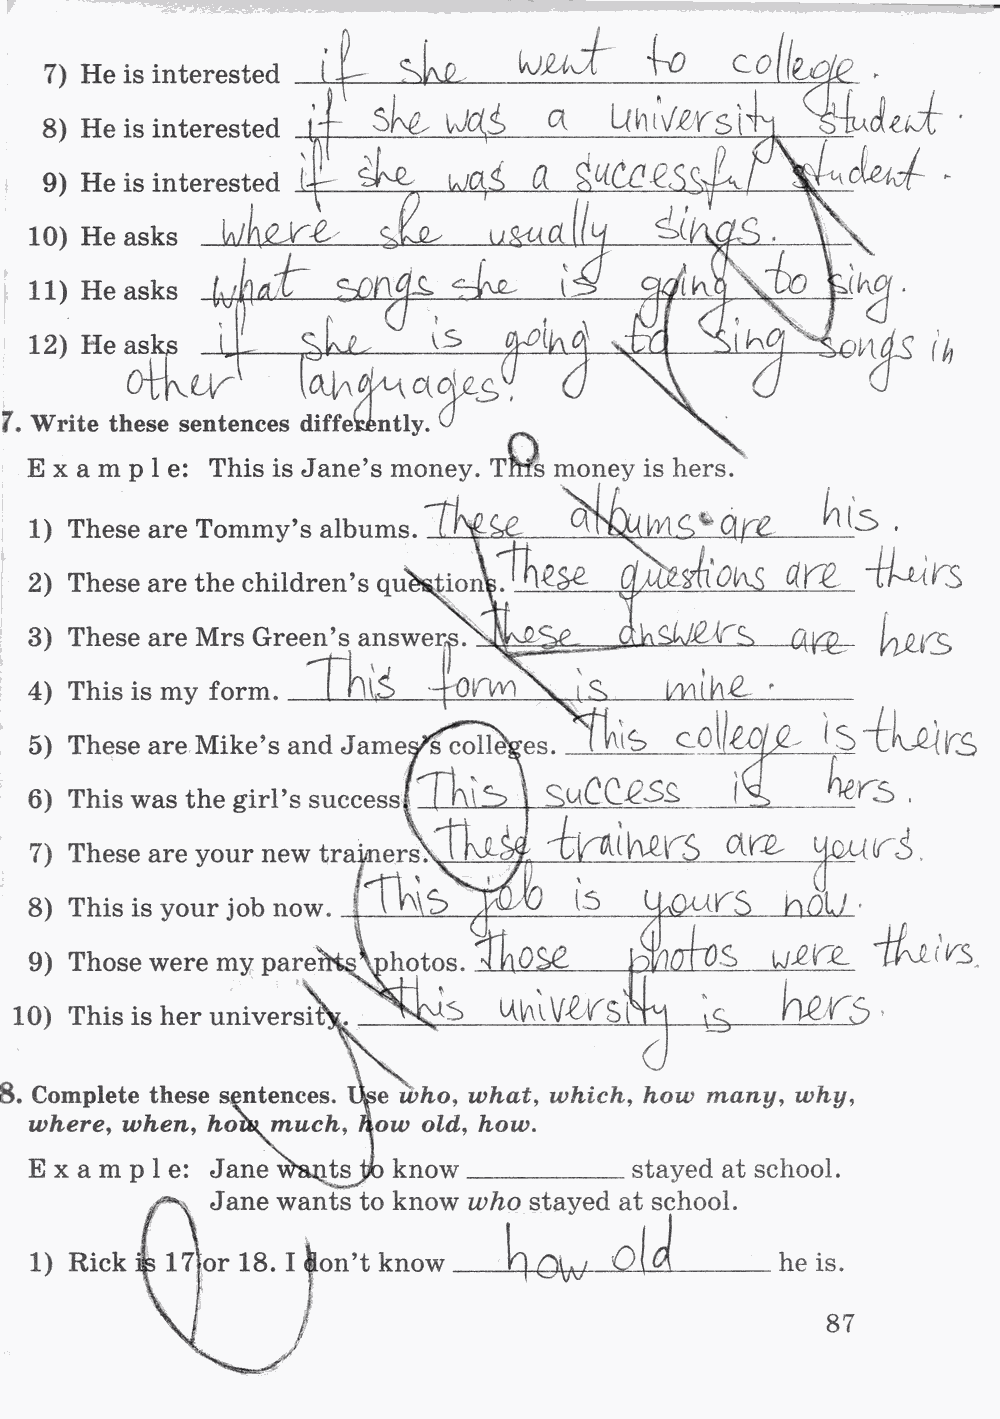 7) He is interested if she went to college.
8) He is interested if she was a university student.
9) He is interested if she was a successful student.
10) He asks where she usually sings.
11) He asks what songs she is going to sing.
12) He asks if she is going to sing songs in
other languages.
7. Write these sentences differently.
Example: This is Jane's money. This money is hers.
1) These are Tommy's albums. These albums are his.
2) These are the children's questions. These questions are theirs
3) These are Mrs Green's answers. These answers are hers
4) This is my form. This form is mine.
5) These are Mike's and James's colleges. This college is theirs
6) This was the girl's success. This success is hers.
7) These are your new trainers. These trainers are yours.
8) This is your job now. This job is yours now.
9) Those were my parents' photos. Those photos were theirs.
10) This is her university. This university is hers.
8. Complete these sentences. Use who, what, which, how many, why,
where, when, how much, how old, how.
Example: Jane wants to know ____ stayed at school.
Jane wants to know who stayed at school.
1) Rick is 17 or 18. I don't know how old he is.
87